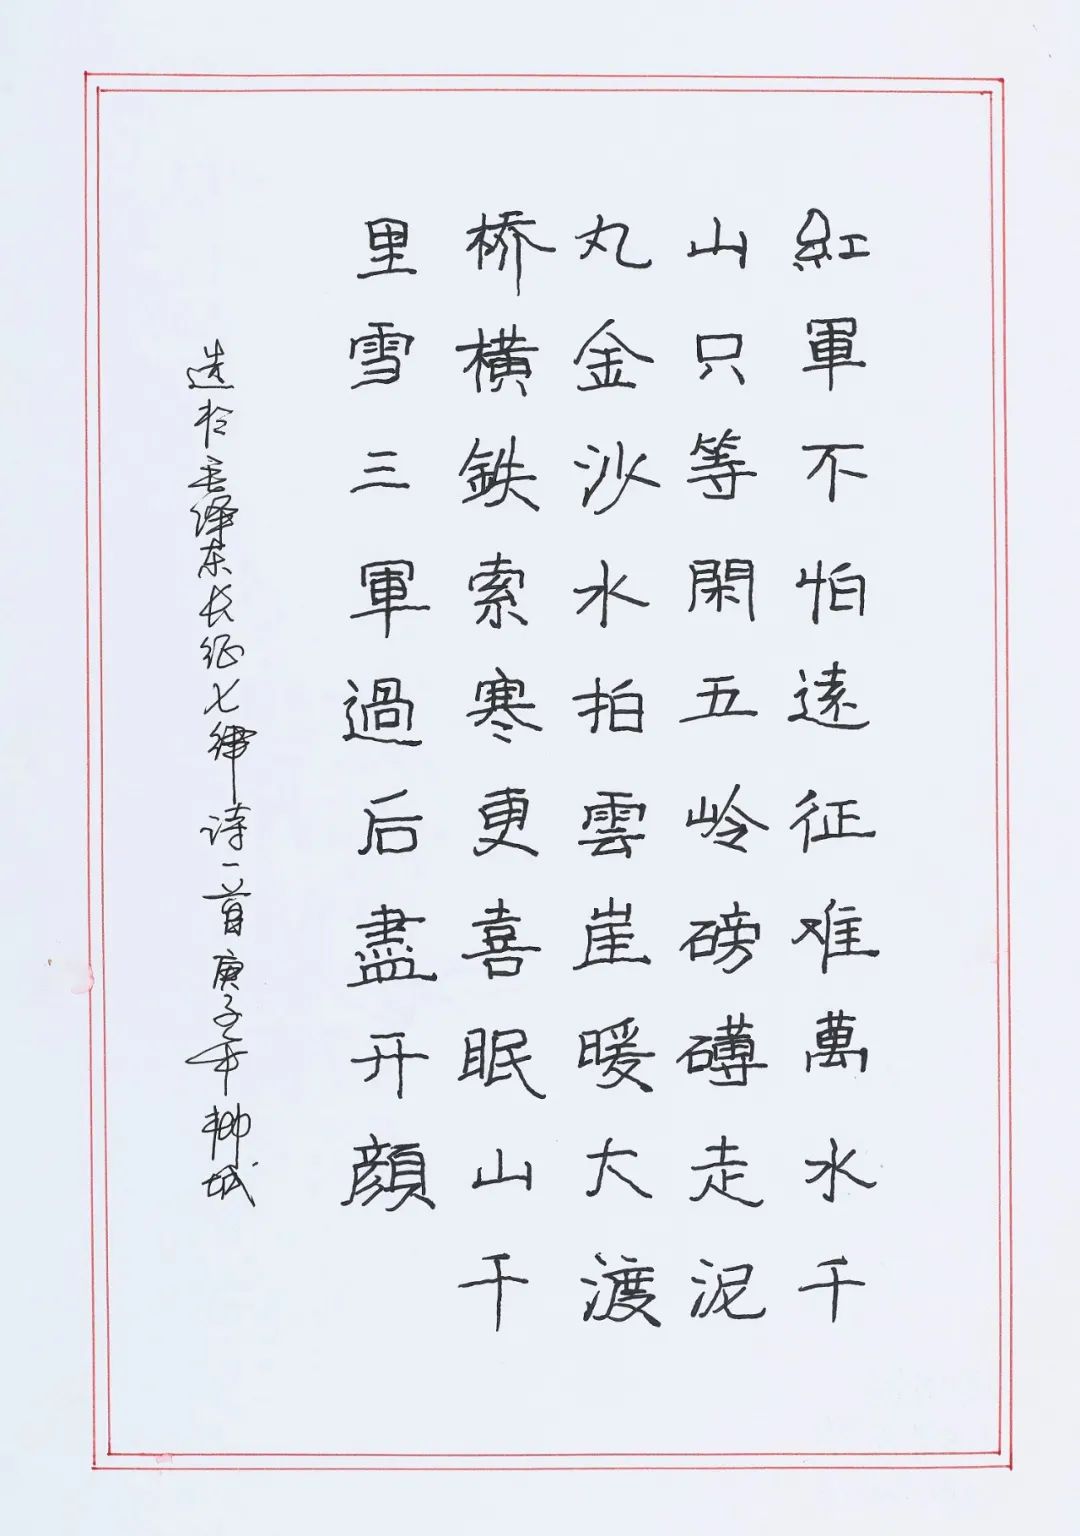 紅軍不怕遠征难萬水千
山只等閑五岭磅礴走泥
丸金沙水拍雲崖暖大渡
桥横鉄索寒更喜眠山千
里雪三軍過后盡开顔
选毛泽东长征七律诗一首庚子年柳城